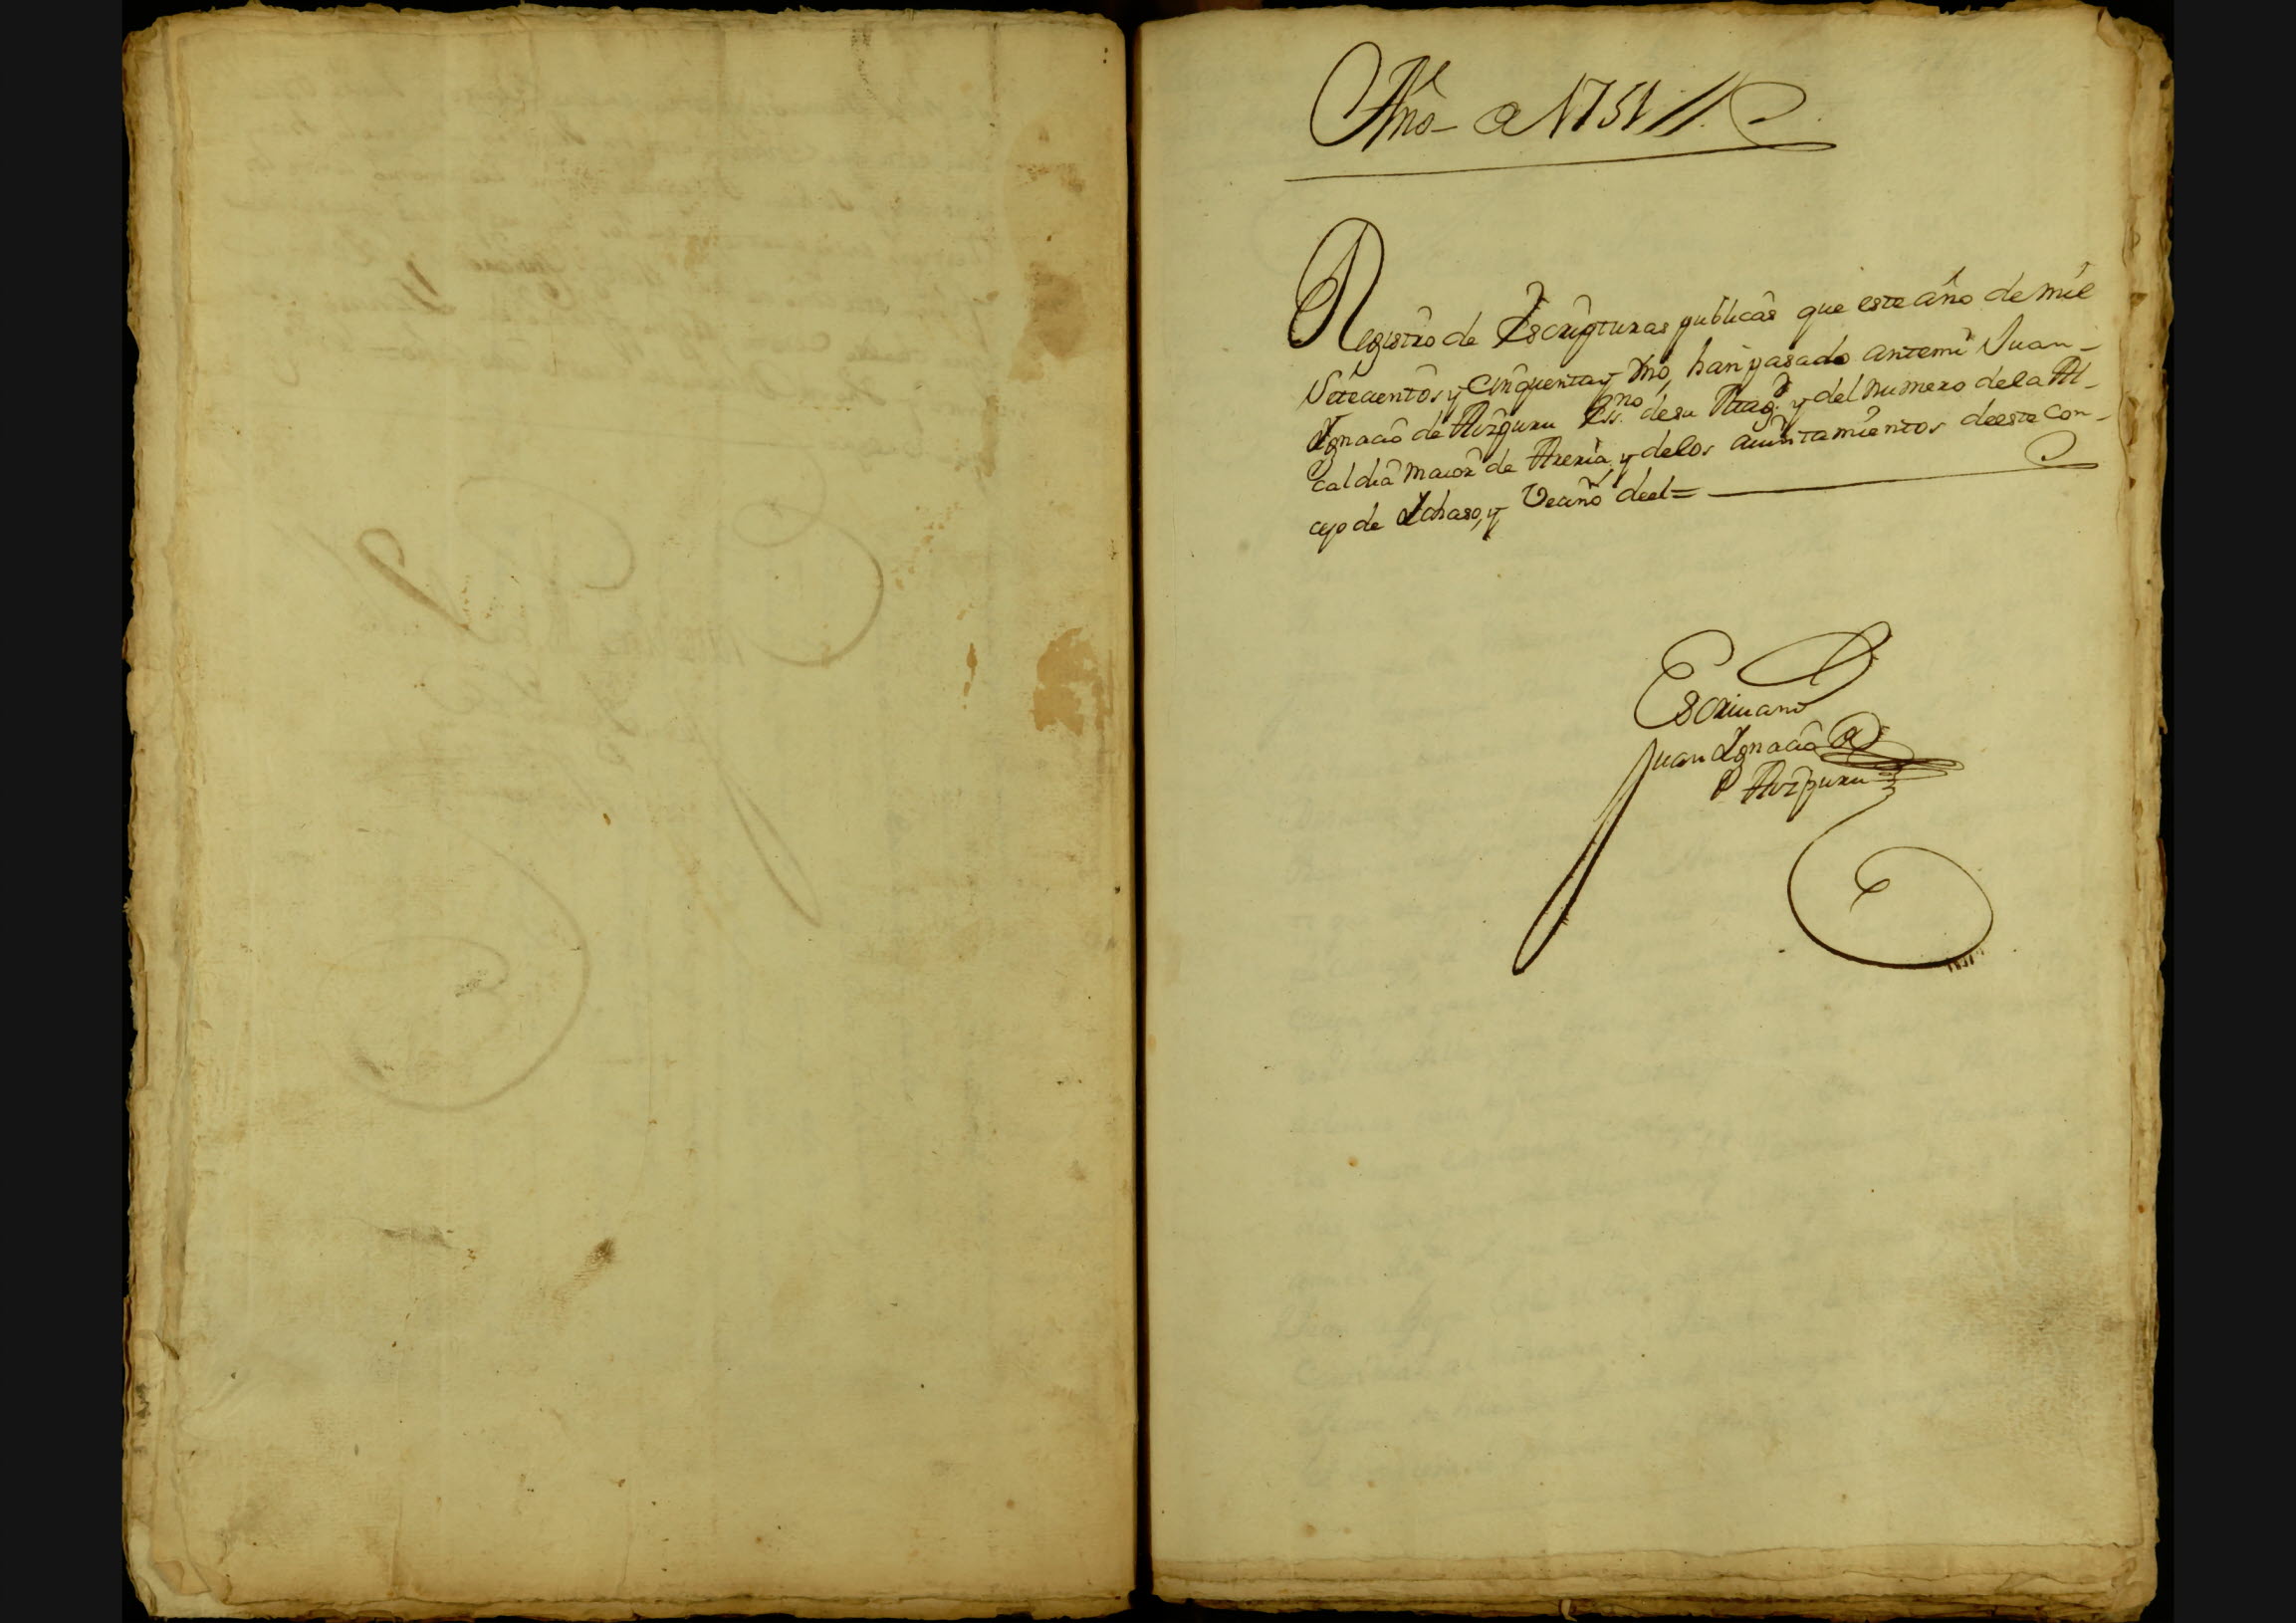 Año de 1751 //
Registro de Escripturas publicas que este año de mil
Setecientos y Cinquenta y Uno, han pasado ante mi Juan
Ygnacio de Aizpuru Ess.no de su Mag.d y del Numero de la Al-
caldia maior de Areria, y de los aiuntamientos de este Con-
cejo de Ichaso, y Vecino de el =
Escriuano
Juan Ignacio de
Aizpuru